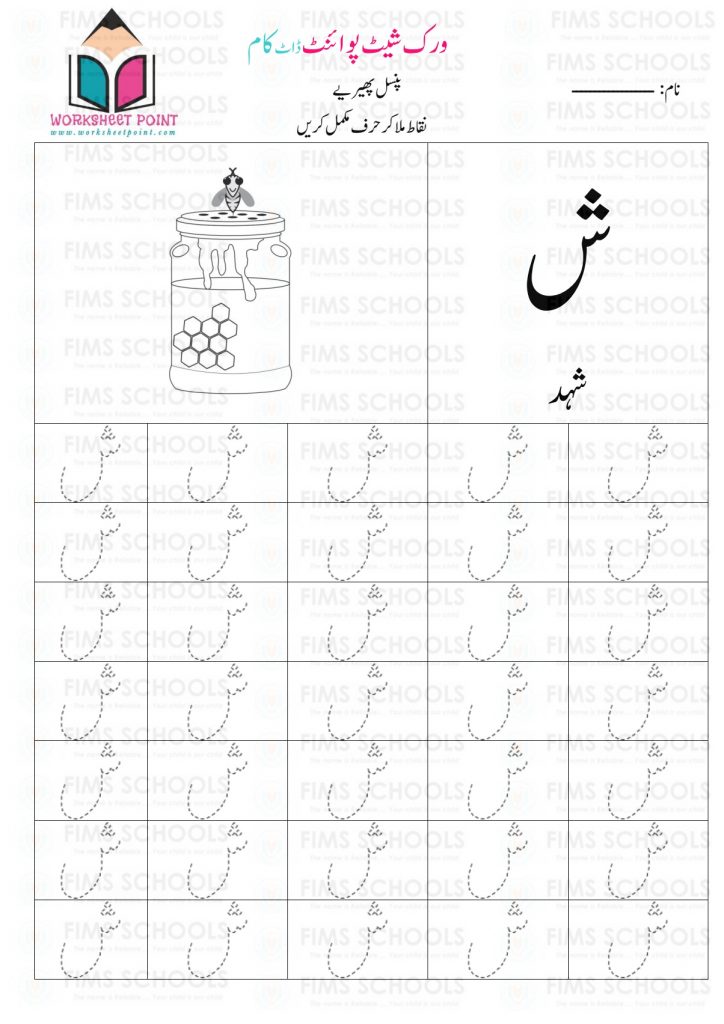 ورک شیٹ پوائنٹ ڈاٹ کام
WORKSHEET POINT
www.worksheetpoint.com
پنسل پھیریے
نام:
نقاط ملا کر حرف مکمل کریں
ش
شہد
ش ش ش ش ش
ش ش ش ش ش
ش ش ش ش ش
ش ش ش ش ش
ش ش ش ش ش
ش ش ش ش ش
ش ش ش ش ش
FIMS SCHOOLS
The name is Reliable.... Your child is our child